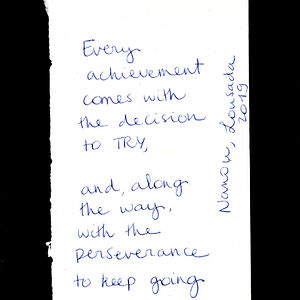 Every
achievement
comes with
the decision
to TRY,
and, along
the way,
with the
perseverance
to keep going
Nanow, Lousada
2019